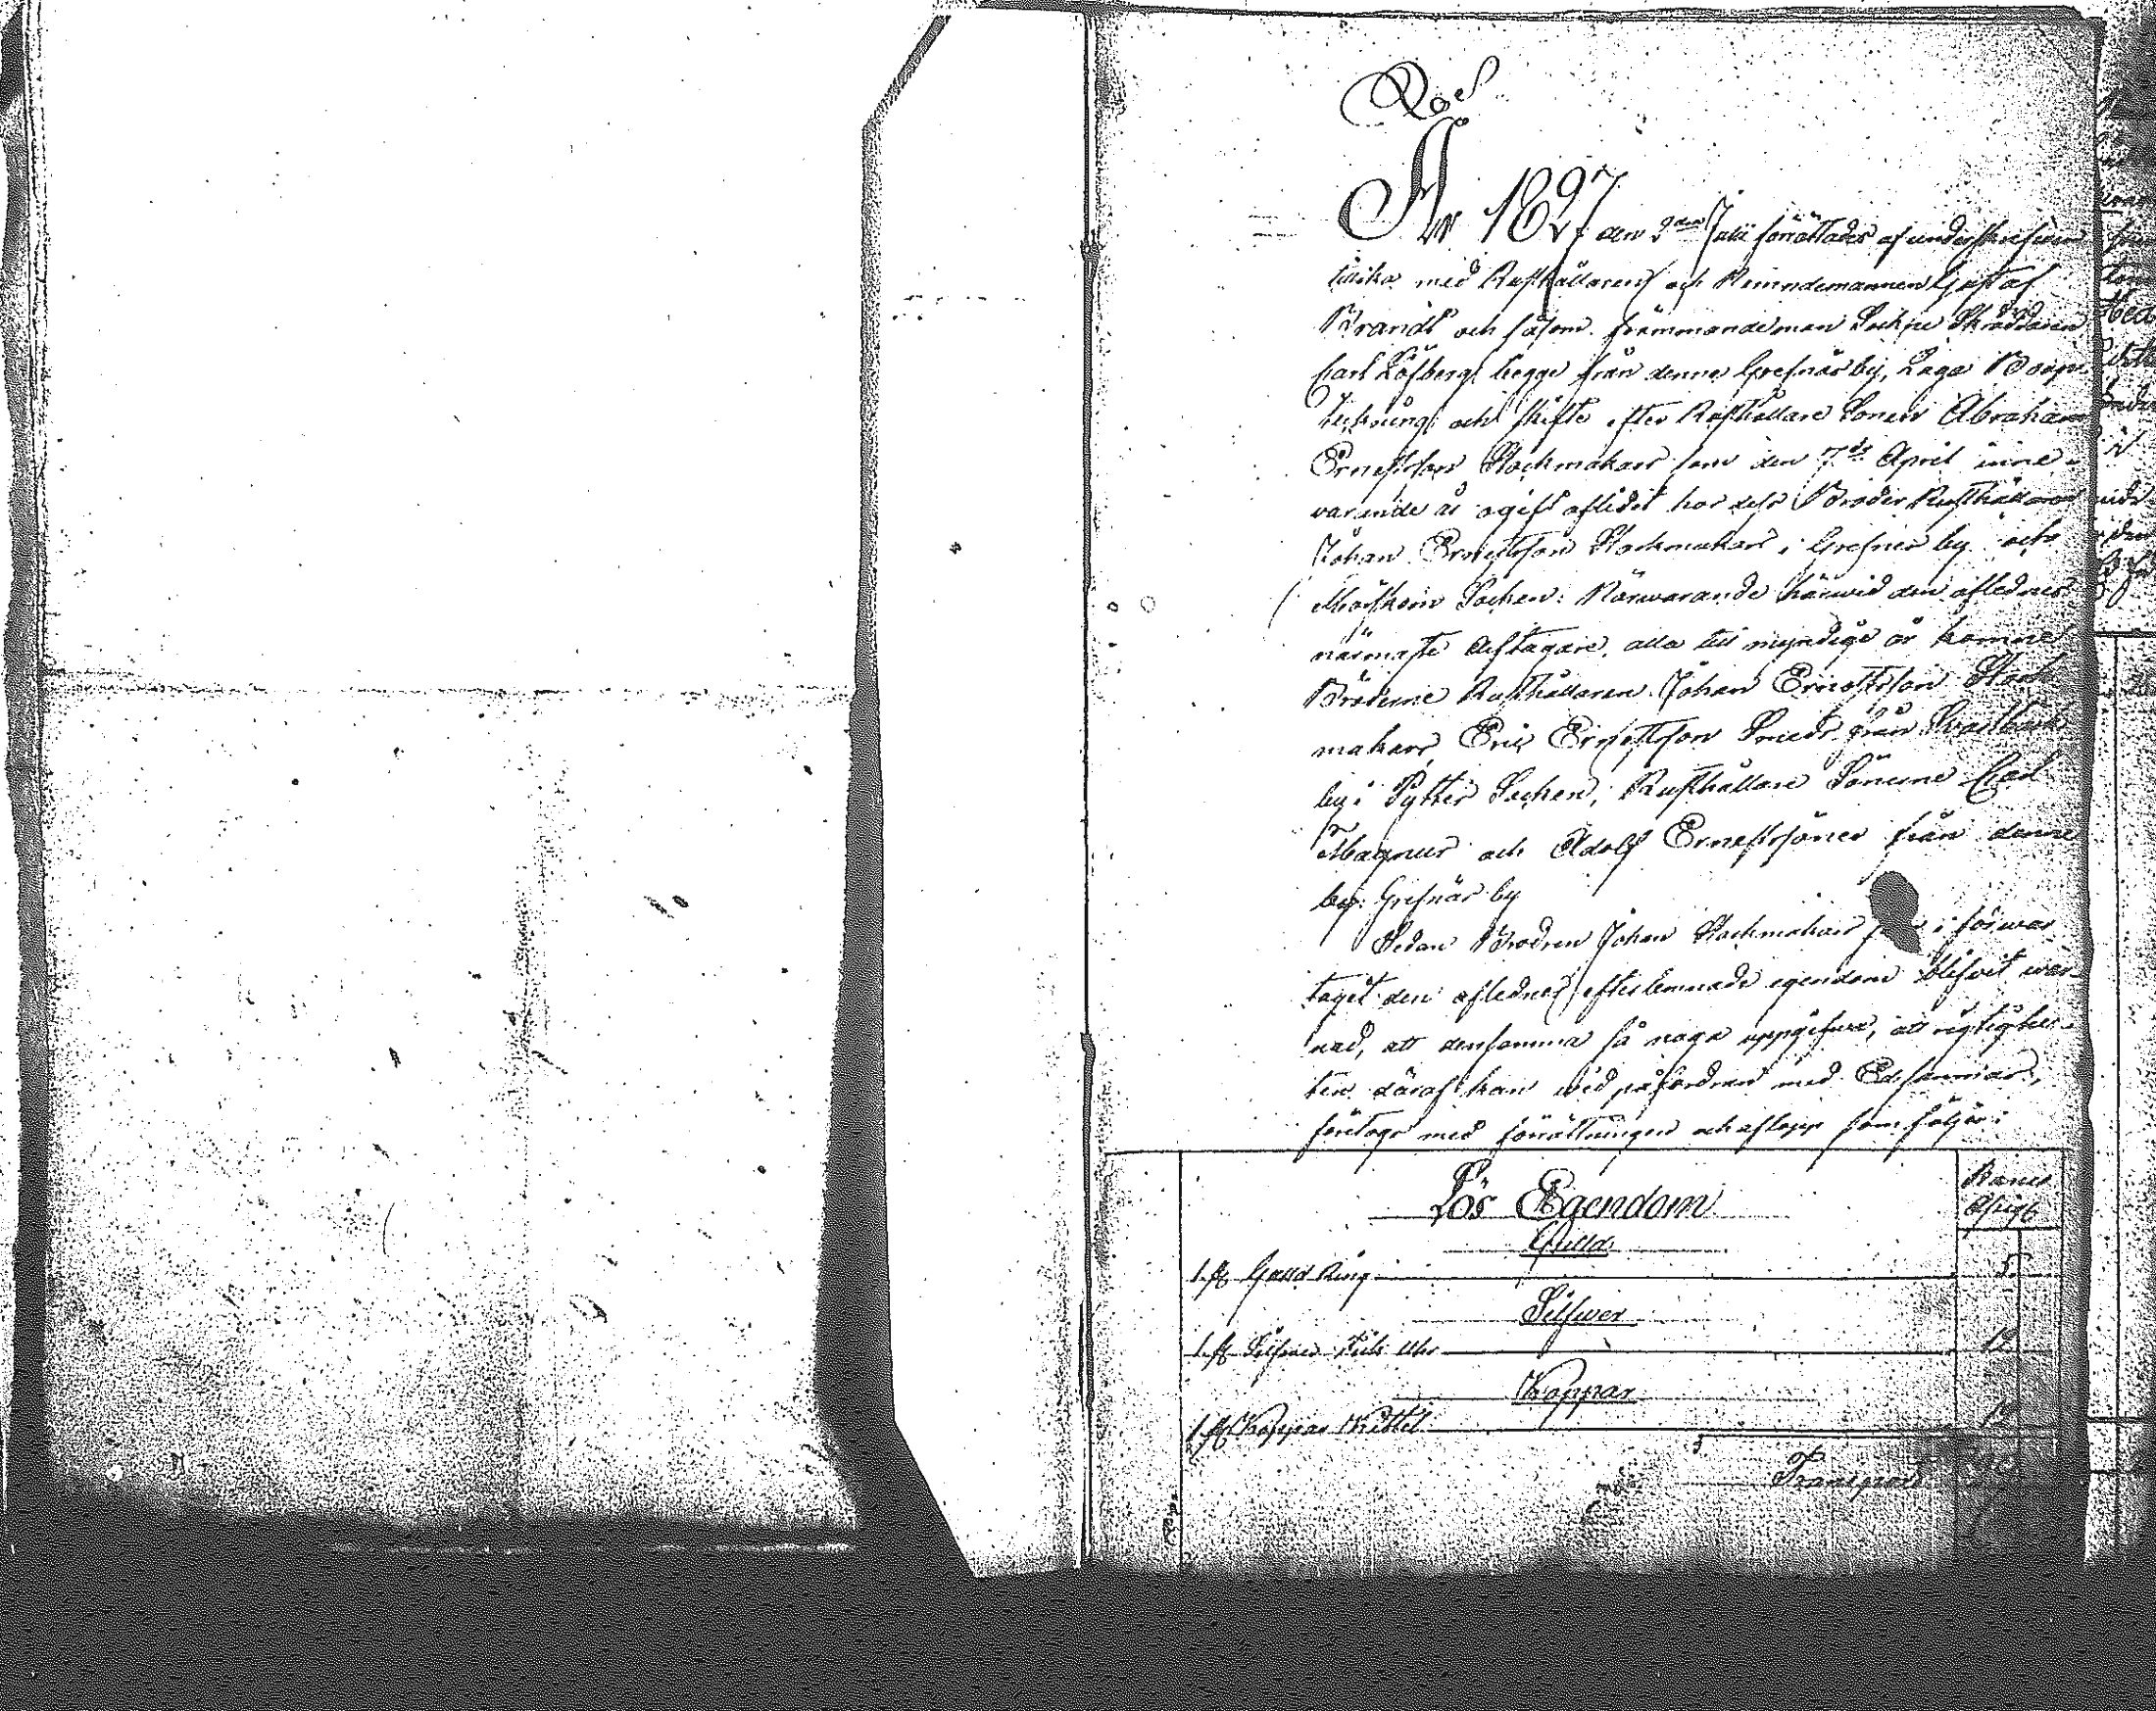 År 1827 den 2dra Julii förrättades af underskrefwen
tillika med Rusthållaren och Nämndemannen Gustaf
Brandt och såsom främmande man Sockne Skräddaren
Carl Löfberg begge från denne Grefnäs by, Laga Boupp
tekning och skifte efter Rusthållare Sonen Abraham
Ernestsson Stockmakars som den 7de April inne-
varande år ogift aflidit hos dess Broder Rusthållaren
Johan Ernestsson Stockmakars i Grefnäs by och
Mörskom Sochen: Närwarande härwid den aflednes
närmaste Arftagare, alla till myndige år komne
Bröderne Rusthållaren Johan Ernestsson Stock
makars, Eric Ernestsson Smeds från Swartbäck
by i Pyttis Sochen, Rusthållare Sönerne Carl
Magnus och Adolf Ernestssöner från denne
by: Grefnäs by
Sedan Brodren Johan Stockmakars i förwar
taget den aflednes efterlemnade egendom blifwit war-
nad, att densamma så noga uppgifwa, att rigtighe-
ten däraf kan wid påfordran med Ed
företogs med förrättningen och aflopp som följer:
Lös Egendom
Guld
1 st Guld Ring 5
Silfwer
1 st Silfwer Fick Uhr
Koppar
1 st Koppar Kittel
Transport